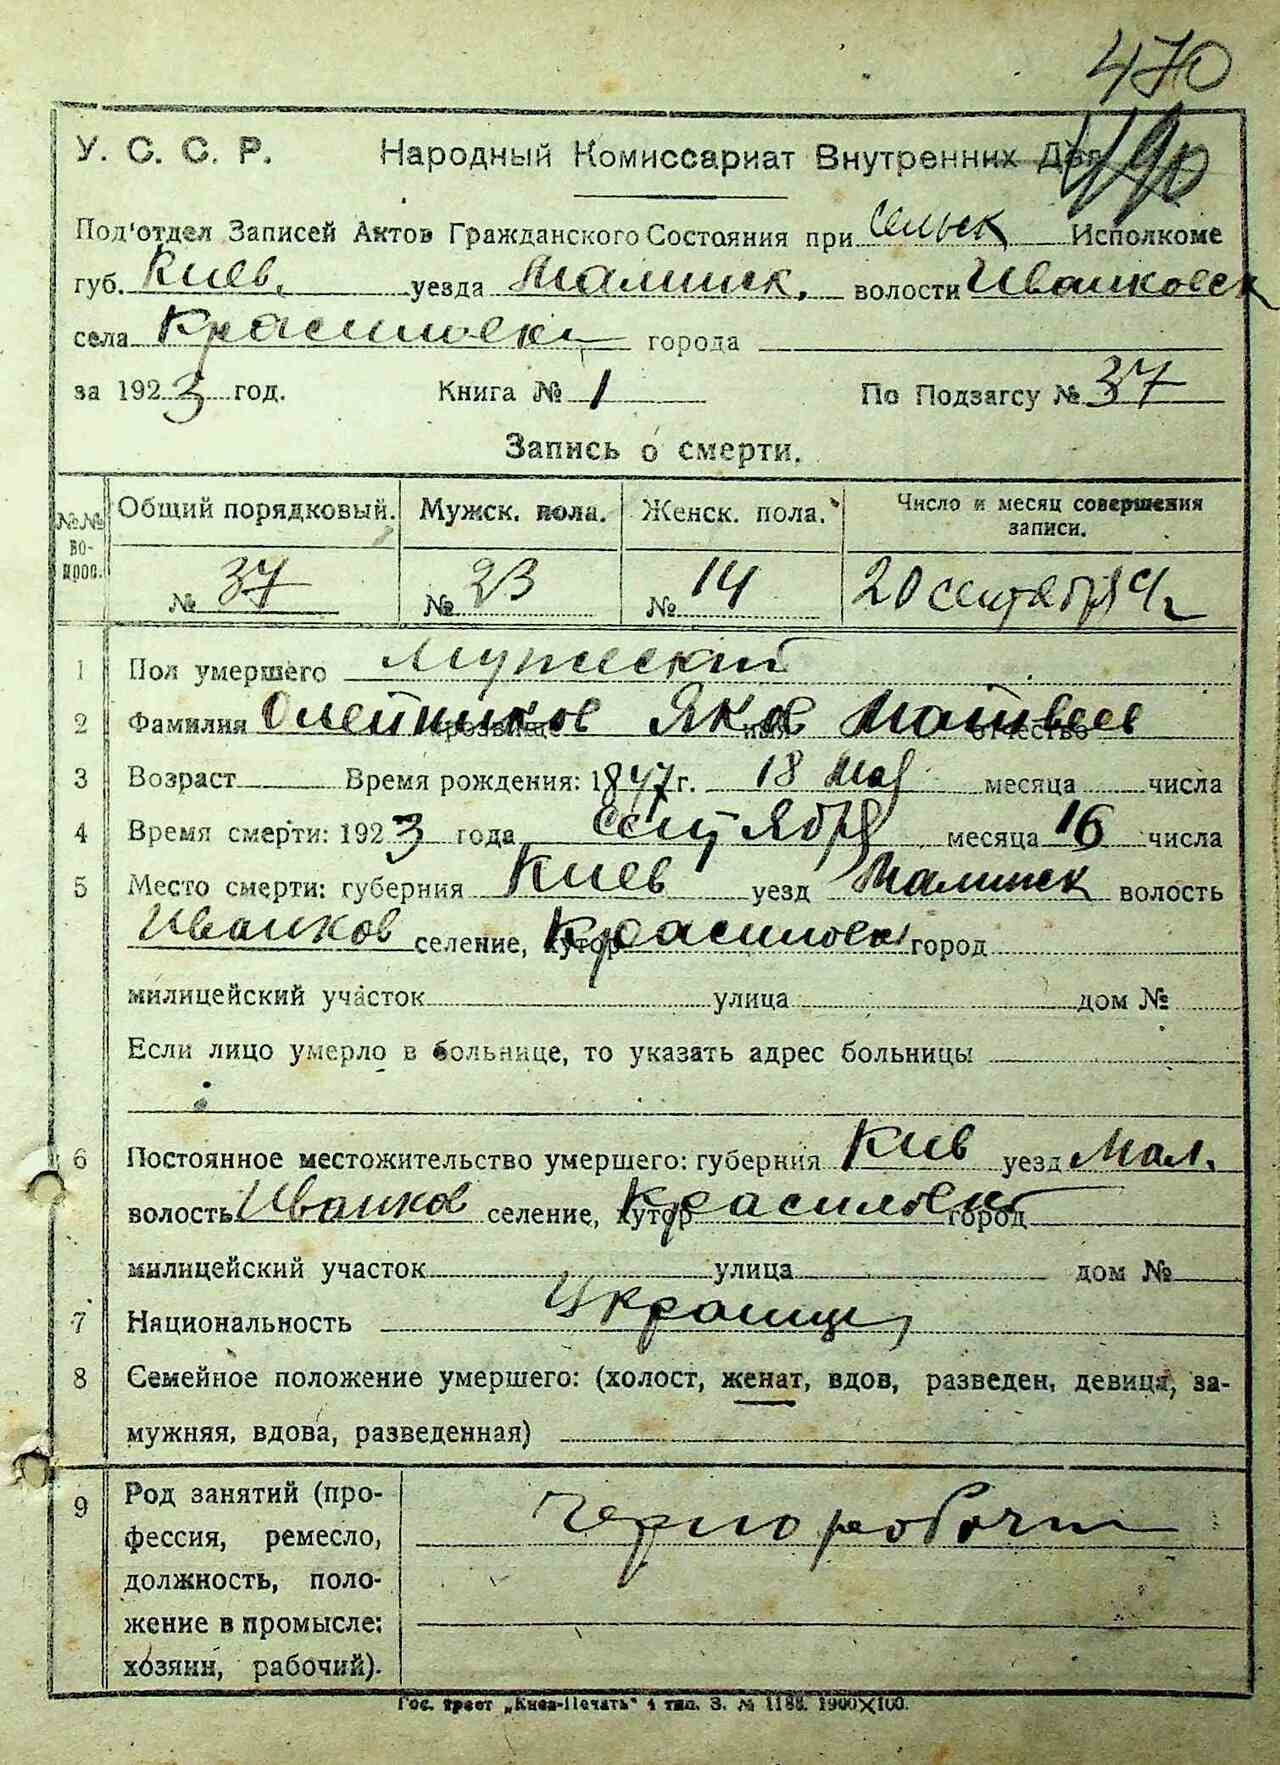 470
490
У. С. С. Р. Народный Комиссариат Внутренних Дел
Под'отдел Записей Актов Гражданского Состояния при Сельск Исполкоме
губ. Киев. уезда Малинск. волости Иванковск
села Красиловки города
за 1923 год. Книга № 1 По Подзагсу № 37
Запись о смерти.
№№ вопрос. Общий порядковый. Мужск. пола. Женск. пола. Число и месяц совершения записи.
№ 37 № 23 № 14 20 сентября
1 Пол умершего Мужеский
2 Фамилия Олейников прозвище Яков имя Матвеев отчество
3 Возраст Время рождения: 1847 г. 18 мая месяца числа
4 Время смерти: 1923 года сентября месяца 16 числа
5 Место смерти: губерния Киев уезд Малинск волость
Иванков селение, хутор Красиловка город
милицейский участок улица дом №
Если лицо умерло в больнице, то указать адрес больницы
6 Постоянное местожительство умершего: губерния Киев уезд Мал.
волость Иванков селение, хутор Красиловка город
милицейский участок улица дом №
7 Национальность Украинец
8 Семейное положение умершего: (холост, женат, вдов, разведен, девица, за-
мужняя, вдова, разведенная)
9 Род занятий (про- Чернорабочий
фессия, ремесло,
должность, поло-
жение в промысле:
хозяин, рабочий).
Гос. трест „Киев-Печать" 4 тип. З. № 1188. 1900×100.